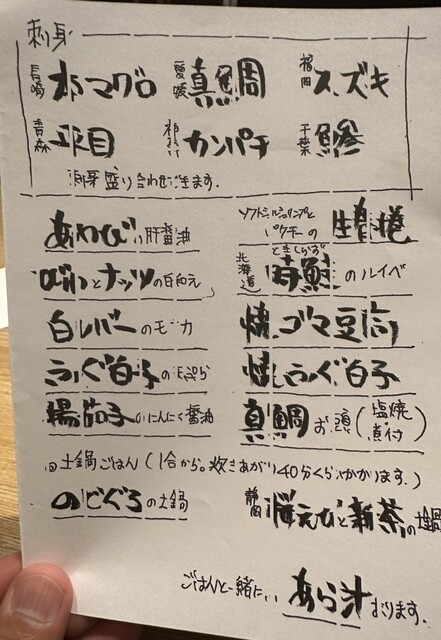 刺身
長崎 本マグロ 愛媛 真鯛 福岡 スズキ
青森 平目 カンパチ 千葉 鰺
刺身盛り合わせできます。
あわびの肝醤油
ソフトシェルシュリンプと
パクチーの生春捲
びわとナッツの白和え
ときしらず
北海道 時鮭のルイベ
白レバーの
焼ゴマ豆腐
ふぐ白子の天ぷら
焼ふぐ白子
揚茄子のにんにく醤油
真鯛お頭(塩焼 煮付)
土鍋ごはん(1合から。炊きあがり40分くらいかかります。)
のどぐろの土鍋
静岡 桜えびと新茶の土鍋
ごはんと一緒に、、あら汁おります。